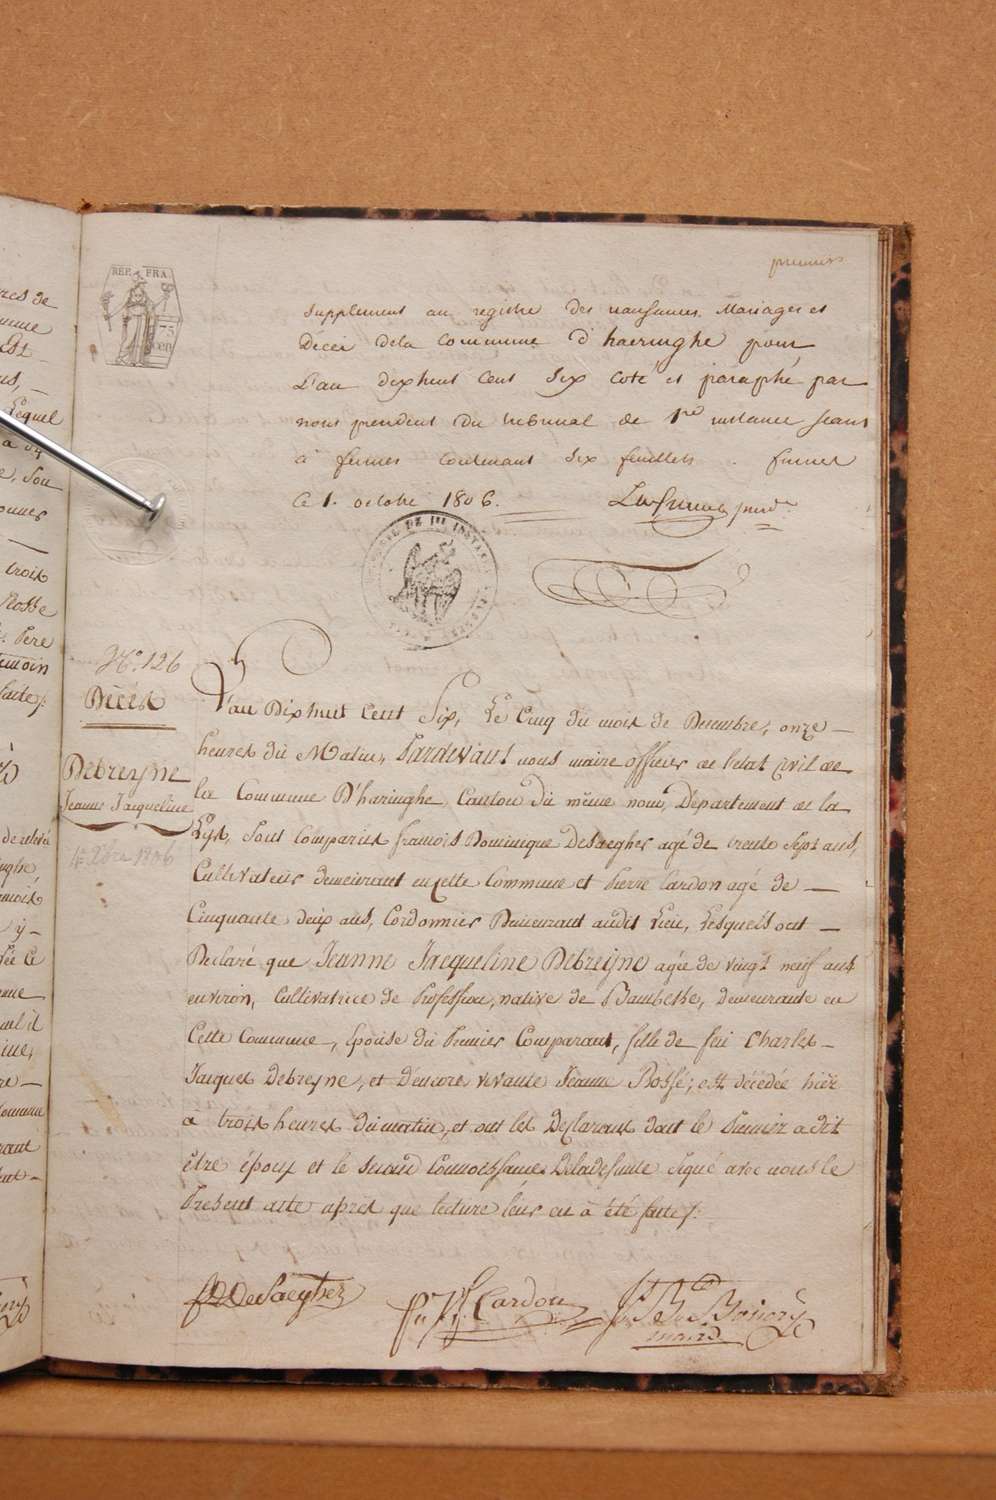 premiers
REP. FRA.
75
cen
supplement au registre des naissances Mariages et
Décés dela Commune d'haeringhe pour
L'an dixhuit cent six coté et paraphé par
nous president du tribunal de 1re instance seant
à furnes contenant six feuillets. furnes
ce 1. octobre 1806.
No. 126
Décés
Debreyne
Jeanne Jacqueline
4 Xbre 1806
L'an Dixhuit Cent Six, Le Cinq du mois de Decembre, onze —
heures du Matin, Pardevant nous maire officier de l'etat civil de
la Commune D'haringhe, Canton du même nom, Département de la
Lys, sont Comparus francois Dominique Desaegher agé de trente Sept ans,
Cultivateur demeurant en cette Commune et Pierre Cardon agé de —
Cinquante deux ans, Cordonnier Demeurant audit Lieu, Lesquels ont —
Declaré que Jeanne Jacqueline Debreyne agée de vingt neuf ans
environ, Cultivatrice de Profession, native de Bambeke, demeurante en
Cette Commune —, Epouse du Premier Comparant, fille de feu Charles —
Jacques Debreyne, et D'encore vivante Jeanne Rossé; est décédée hier
a trois heures du matin, et ont les Declarans dont le Premier a dit
être époux et le second Connoissance Deladefunte signé avec nous le
Present acte aprés que lecture leur en à été faite /.
FD DeSaegher
P: J: Cardon
maire
res de
mune
Est
Lequel
trois
Rosse
Pere
temoin
faite /: